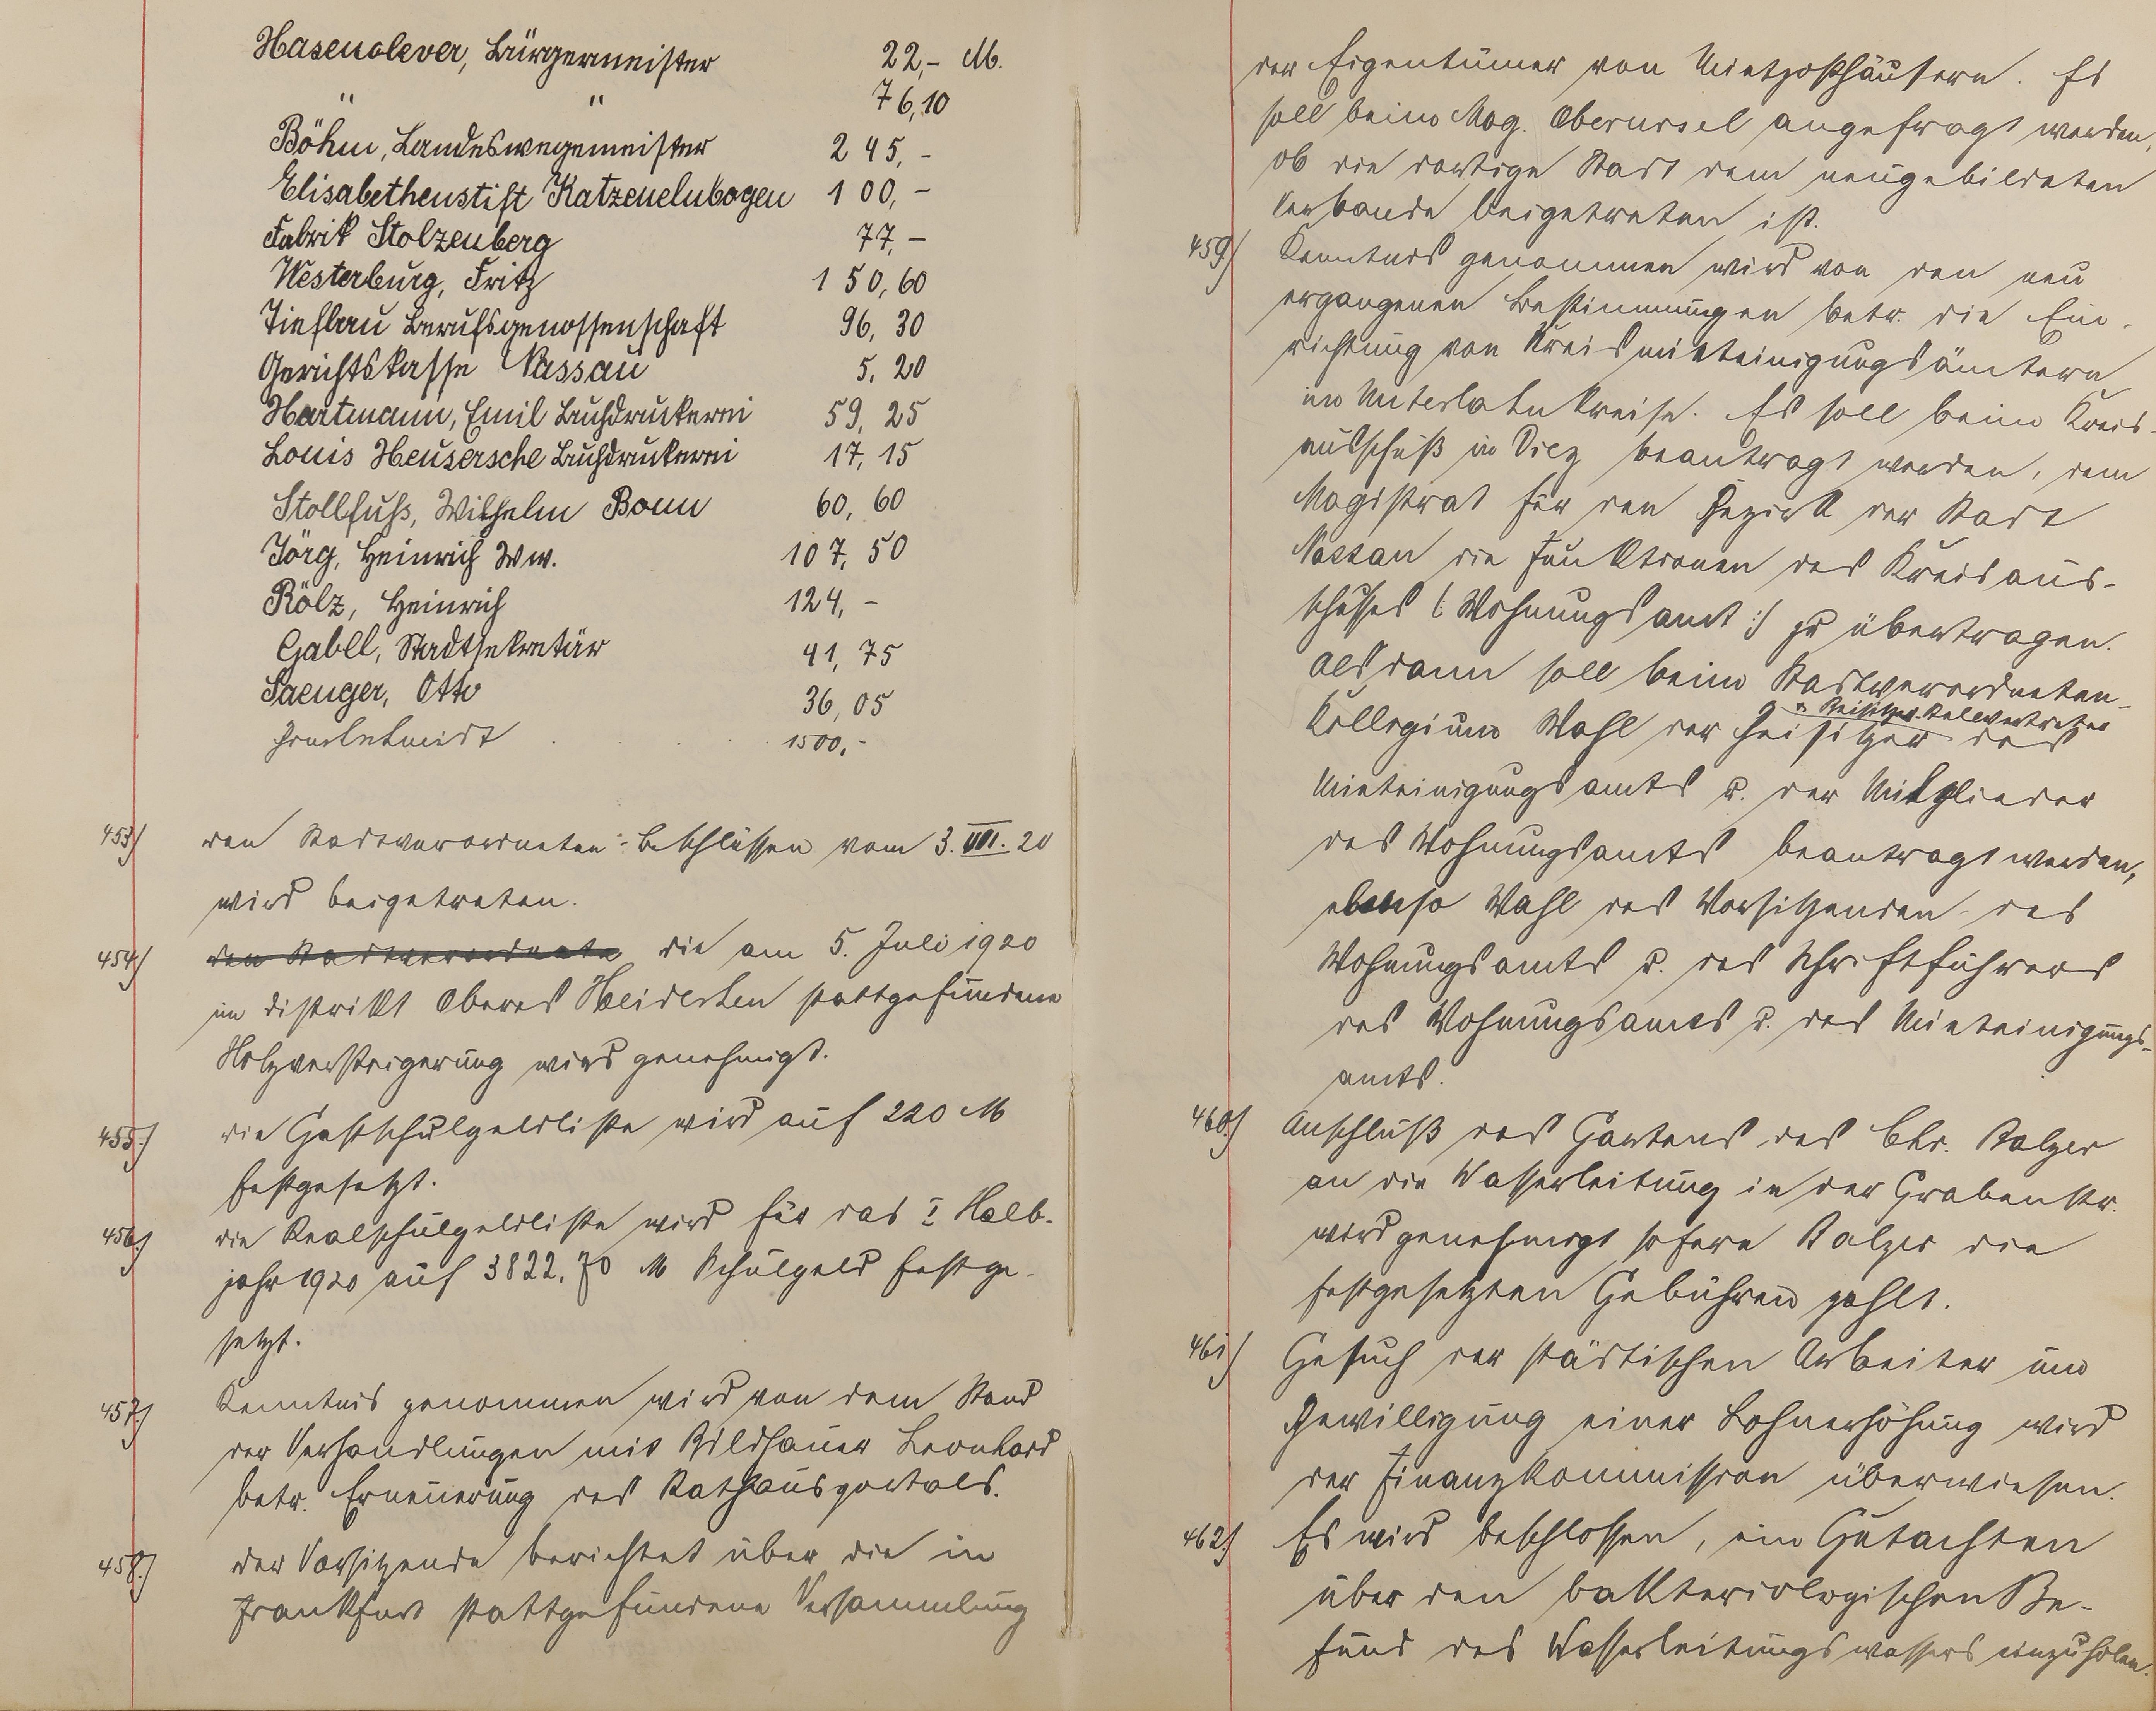 Hasenclever, Bürgermeister 22,- M.
" " 76,10
Böhm, Landeswegemeister 245,-
Elisabethenstift Katzenelnbogen 100,-
Fabrik Stolzenberg 77,-
Westerburg, Fritz 150,60
Tiefbau Berufsgenossenschaft 96,30
Gerichtskasse Nassau 5,20
Hartmann, Emil Buchdruckerei 59,25
Louis Heusersche Buchdruckerei 17,15
Stollfuss, Wilhelm Bonn 60,60
Jörg, Heinrich Ww. 107,50
Rölz, Heinrich 124,-
Gabel, Stadtsekretär 41,75
Saenger, Otto 36,05
1500,-
453) den Stadtverordneten-Beschlüssen vom 3.VII.20
wird beigetreten.
454) den Stadtverordnete die am 5. Juli 1920
im distrikt Oberes stattgefundene
Holzversteigerung wird genehmigt.
455.) die Gastschulgeldliste wird auf 220 M
festgesetzt.
456.) die Realschulgeldliste wird für das I Halb-
jahr 1920 auf 3822.70 M Schulgeld festge-
setzt.
457.) Kenntnis genommen wird von dem Stand
der Verhandlungen mit Bildhauer Leonhard
betr. Erneuerung des Rathausportals.
458.) der Vorsitzende berichtet über die in
Frankfurt stattgefundene Versammlung
der Eigentümer von Mietzosthäusern. Es
soll beim Mag. Oberursel angefragt werden,
ob die dortige Stadt dem neugebildeten
Verbande beigetreten ist.
459) Kenntnis genommen wird von den neu
ergangenen Bestimmungen betr. die Ein-
richtung von Kreismieteinigungsämtern
im Unterlahnkreise. Es soll beim Kreis-
ausschuß in Diez beantragt werden, dem
Magistrat für den Bezirk der Stadt
Nassau die Funktionen des Kreisaus-
schusses (: Wohnungsamt :) zu übertragen.
alsdann soll beim Stadtverordneten-
Kollegium Wahl der Beisitzer u. Beisitzer-Stellvertreter des
Mieteinigungsamts u. der Mitglieder
des Wohnungsamts beantragt werden,
ebenso Wahl des Vorsitzenden des
Wohnungsamts u. des Schriftführers
des Wohnungsamts u. des Mieteinigungs-
amts.
460.) Anschluß des Gartens des Chr. Balzer
an die Wasserleitung in der Grabenstr.
wird genehmigt sofern Balzer die
festgesetzten Gebühren zahlt.
461) Gesuch der städtischen Arbeiter um
Bewilligung einer Lohnerhöhung wird
der Finanzkommission überwiesen.
462.) Es wird beschlossen, ein Gutachten
über den bakteriologischen Be-
fund des Wasserleitungswassers einzuholen.